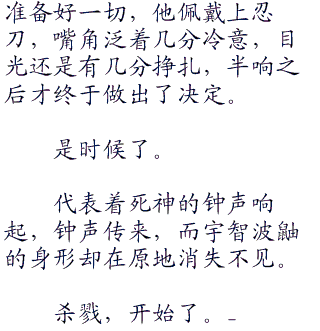 准备好一切，他佩戴上忍
刀，嘴角泛着几分冷意，目
光还是有几分挣扎，半响之
后才终于做出了决定。
是时候了。
代表着死神的钟声响
起，钟声传来，而宇智波鼬
的身形却在原地消失不见。
杀戮，开始了。_